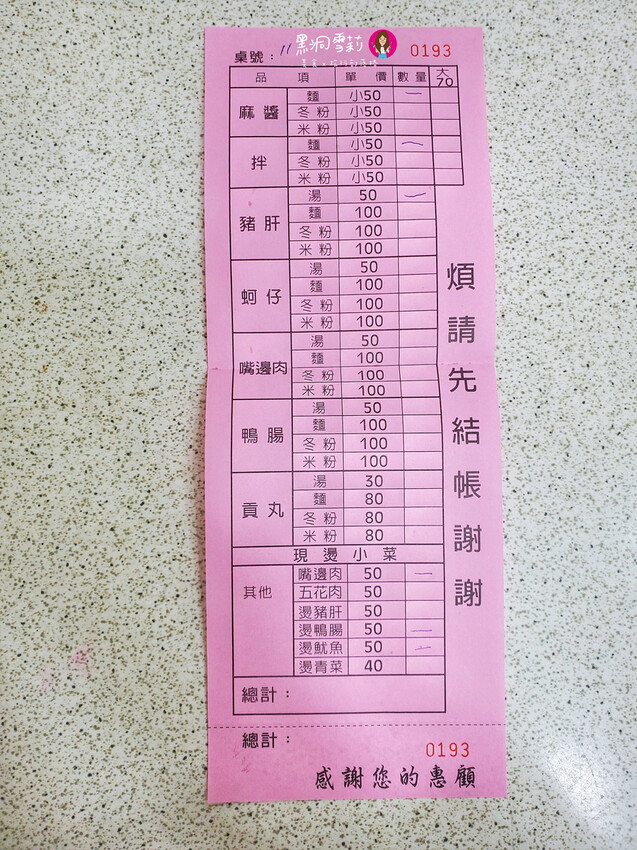 黑洞雪莉
桌號：11 0193
品項 單價 數量 大70
麻醬 麵 小50 一
冬粉 小50
米粉 小50
拌 麵 小50 一
冬粉 小50
米粉 小50
豬肝 湯 50 一
麵 100
冬粉 100
米粉 100
蚵仔 湯 50
麵 100
冬粉 100
米粉 100
嘴邊肉 湯 50
麵 100
冬粉 100
米粉 100
鴨腸 湯 50
麵 100
冬粉 100
米粉 100
貢丸 湯 30
麵 80
冬粉 80
米粉 80
現燙小菜
其他 嘴邊肉 50 一
五花肉 50
燙豬肝 50
燙鴨腸 50 一
燙魷魚 50
燙青菜 40
總計：
煩請先結帳謝謝
總計：
0193
感謝您的惠顧